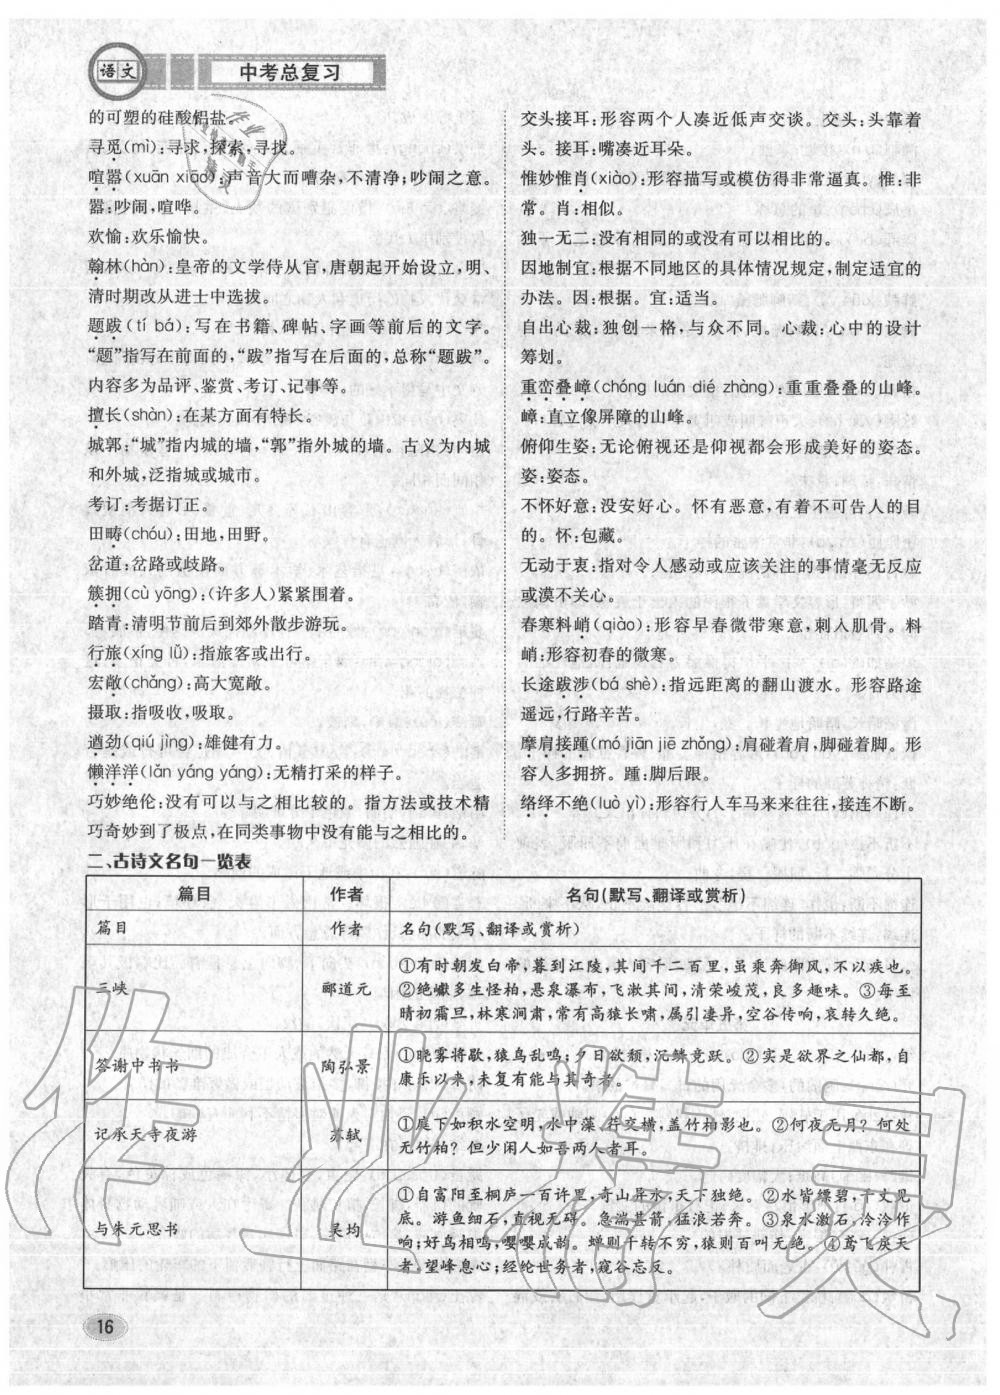 语文
中考总复习
的可塑的硅酸铝盐。
寻觅(mì):寻求,探索,寻找。
喧嚣(xuān xiāo):声音大而嘈杂,不清净;吵闹之意。
嚣:吵闹,喧哗。
欢愉:欢乐愉快。
翰林(hàn):皇帝的文学侍从官,唐朝起开始设立,明、
清时期改从进士中选拔。
题跋(tí bá):写在书籍、碑帖、字画等前后的文字。
“题”指写在前面的,“跋”指写在后面的,总称“题跋”。
内容多为品评、鉴赏、考订、记事等。
擅长(shàn):在某方面有特长。
城郭:“城”指内城的墙,“郭”指外城的墙。古义为内城
和外城,泛指城或城市。
考订:考据订正。
田畴(chóu):田地,田野。
岔道:岔路或歧路。
簇拥(cù yōng):(许多人)紧紧围着。
踏青:清明节前后到郊外散步游玩。
行旅(xíng lǚ):指旅客或出行。
宏敞(chǎng):高大宽敞。
摄取:指吸收,吸取。
遒劲(qiú jìng):雄健有力。
懒洋洋(lǎn yáng yáng):无精打采的样子。
巧妙绝伦:没有可以与之相比较的。指方法或技术精
巧奇妙到了极点,在同类事物中没有能与之相比的。
交头接耳:形容两个人凑近低声交谈。交头:头靠着
头。接耳:嘴凑近耳朵。
惟妙惟肖(xiào):形容描写或模仿得非常逼真。惟:非
常。肖:相似。
独一无二:没有相同的或没有可以相比的。
因地制宜:根据不同地区的具体情况规定,制定适宜的
办法。因:根据。宜:适当。
自出心裁:独创一格,与众不同。心裁:心中的设计
筹划。
重峦叠嶂(chóng luán dié zhàng):重重叠叠的山峰。
嶂:直立像屏障的山峰。
俯仰生姿:无论俯视还是仰视都会形成美好的姿态。
姿:姿态。
不怀好意:没安好心。怀有恶意,有着不可告人的目
的。怀:包藏。
无动于衷:指对令人感动或应该关注的事情毫无反应
或漠不关心。
春寒料峭(qiào):形容早春微带寒意,刺人肌骨。料
峭:形容初春的微寒。
长途跋涉(bá shè):指远距离的翻山渡水。形容路途
遥远,行路辛苦。
摩肩接踵(mó jiān jiē zhǒng):肩碰着肩,脚碰着脚。形
容人多拥挤。踵:脚后跟。
络绎不绝(luò yì):形容行人车马来来往往,接连不断。
二、古诗文名句一览表
篇目 作者 名句(默写、翻译或赏析)
篇目 作者 名句(默写、翻译或赏析)
三峡 郦道元 ①有时朝发白帝,暮到江陵,其间千二百里,虽乘奔御风,不以疾也。
②绝巘多生怪柏,悬泉瀑布,飞漱其间,清荣峻茂,良多趣味。③每至
晴初霜旦,林寒涧肃,常有高猿长啸,属引凄异,空谷传响,哀转久绝。
答谢中书书 陶弘景 ①晓雾将歇,猿鸟乱鸣;夕日欲颓,沉鳞竞跃。②实是欲界之仙都,自
康乐以来,未复有能与其奇者。
记承天寺夜游 苏轼 ①庭下如积水空明,水中藻、荇交横,盖竹柏影也。②何夜无月?何处
无竹柏?但少闲人如吾两人者耳。
与朱元思书 吴均 ①自富阳至桐庐一百许里,奇山异水,天下独绝。②水皆缥碧,千丈见
底。游鱼细石,直视无碍。急湍甚箭,猛浪若奔。③泉水激石,泠泠作
响;好鸟相鸣,嘤嘤成韵。蝉则千转不穷,猿则百叫无绝。④鸢飞戾天
者,望峰息心;经纶世务者,窥谷忘反。
16
作业精灵